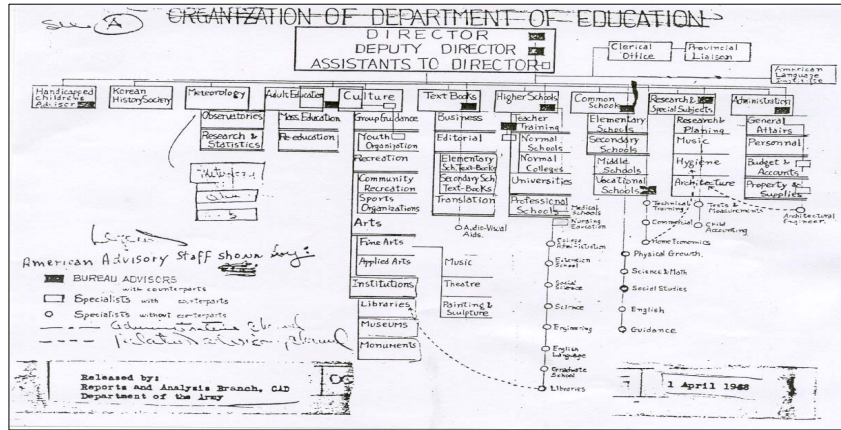 See A
ORGANIZATION OF DEPARTMENT OF EDUCATION
DIRECTOR
DEPUTY DIRECTOR
ASSISTANTS TO DIRECTOR
Clerical Office
Provincial Liaison
American Language Institute
Handicapped Childrens Adviser
Korean History Society
Meteorology
Observatories
Research & Statistics
Adult Education
Mass Education
Re-education
Culture
Group Guidance
Youth Organization
Recreation
Community Recreation
Sports Organizations
Arts
Fine Arts
Applied Arts
Institutions
Libraries
Museums
Monuments
Music
Theatre
Painting & Sculpture
Text Books
Business
Editorial
Elementary Sch. Text-Books
Secondary Sch. Text-Books
Translation
Audio-Visual Aids.
Higher Schools
Teacher Training
Normal Schools
Normal Colleges
Universities
Professional Schools
Medical Schools
Nursing Education
College Administration
Extension School
Social Science
Science
Engineering
English Language
Graduate School
Libraries
Common Schools
Elementary Schools
Secondary Schools
Middle Schools
Vocational Schools
Technical Training
Commercial
Home Economics
Physical Growth.
Science & Math
Social Studies
English
Guidance
Research & Special Subjects.
Research & Planing
Music
Hygiene
Architecture
Tests & Measurements
Child Accounting
Architectural Engineer.
Administration
General Affairs
Personnal
Budget & Accounts
Property & Supplies
American Advisory Staff shown by:
BUREAU ADVISORS
with counterparts
Specialists with counterparts
Specialists without counterparts
Released by:
Reports and Analysis Branch, CAD
Department of the Army
1 April 1948